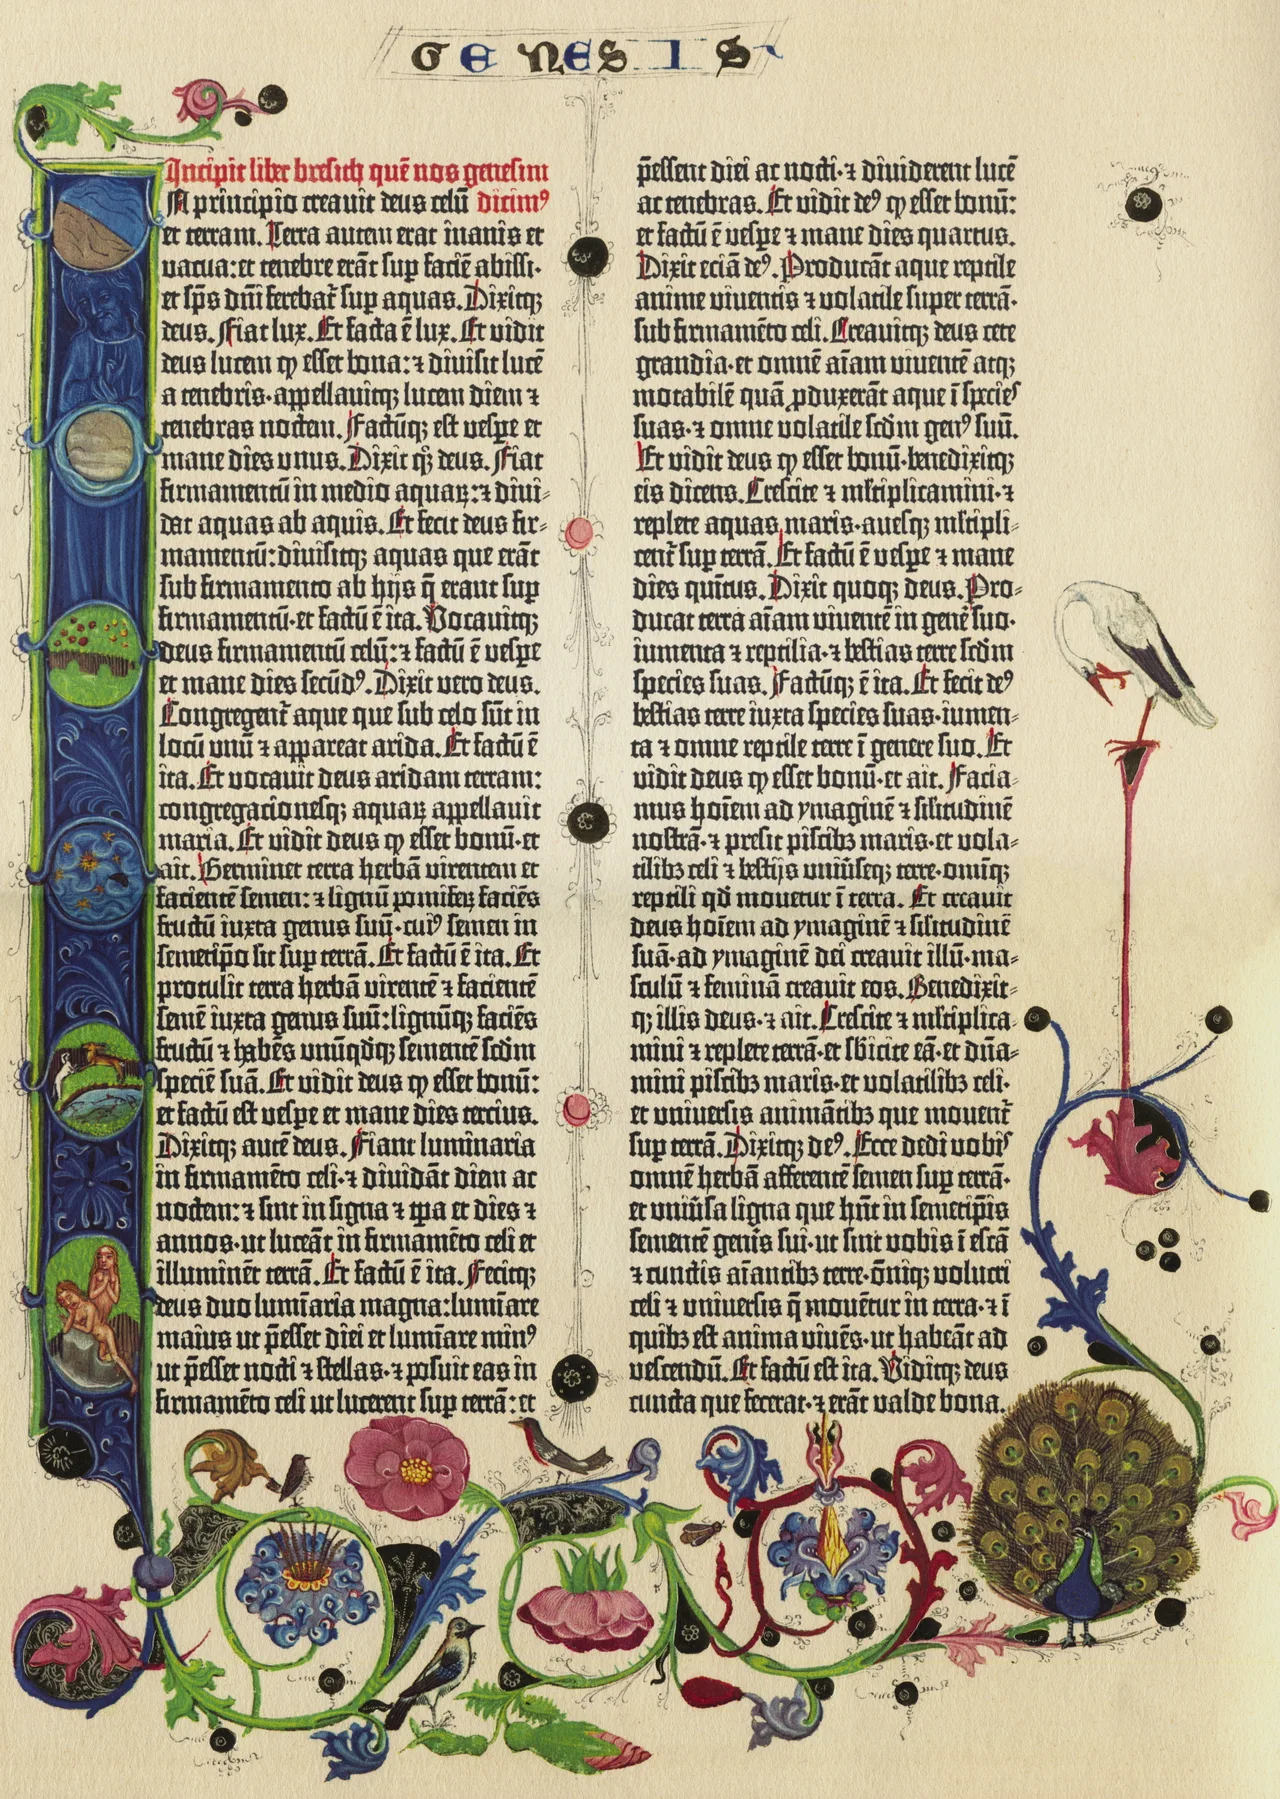 GENESIS
Incipit liber bresith quē nos genesim
In principio creavit deus celū dicim⁹
et terram. Terra autem erat inanis et
vacua: et tenebre erāt sup faciē abissi·
et sp̄s dn̄i ferebat᷑ sup aquas. Dixitqꝫ
deus. Fiat lux. Et facta ē lux. Et vidit
deus lucem ꝙ esset bona: ⁊ divisit lucē
a tenebris· appellavitqꝫ lucem diem ⁊
tenebras noctem. Factūqꝫ est vespe et
mane dies unus. Dixit qꝫ deus. Fiat
firmamentū in medio aquaꝝ: ⁊ divi-
dat aquas ab aquis. Et fecit deus fir-
mamentū: divisitqꝫ aquas que erāt
sub firmamento ab hijs q̄ erant sup
firmamentū· et factū ē ita. Vocavitqꝫ
deus firmamentū celū: ⁊ factū ē vespe
et mane dies secūd⁹. Dixit vero deus.
Congregent᷑ aque que sub celo sūt in
locū unū ⁊ appareat arida. Et factū ē
ita. Et vocavit deus aridam terram:
congregacionesqꝫ aquaꝝ appellavit
maria. Et vidit deus ꝙ esset bonū· et
ait. Germinet terra herbā virentem et
facientē semen: ⁊ lignū pomiferꝝ faciēs
fructū iuxta genus suū· cui⁹ semen in
semetip̄o sit sup terrā. Et factū ē ita. Et
protulit terra herbā virentē ⁊ facientē
semē iuxta genus suū: lignūqꝫ faciēs
fructū ⁊ habēs unūqdqꝫ sementē scd̄m
speciē suā. Et vidit deus ꝙ esset bonū:
et factū est vespe et mane dies tercius.
Dixitqꝫ autē deus. Fiant luminaria
in firmamēto celi· ⁊ dividāt diem ac
noctem: ⁊ sint in signa ⁊ tp̄a et dies ⁊
annos· ut luceāt in firmamēto celi et
illuminēt terrā. Et factū ē ita. Fecitqꝫ
deus duo lumīaria magna: lumīare
maius ut p̄esset diei et lumīare min⁹
ut p̄esset nocti ⁊ stellas· ⁊ posuit eas in
firmamēto celi ut lucerent sup terrā: et
p̄essent diei ac nocti· ⁊ dividerent lucē
ac tenebras. Et vidit de⁹ ꝙ esset bonū:
et factū ē vespe ⁊ mane dies quartus.
Dixit eciā de⁹. Producāt aque reptile
anime viventis ⁊ volatile super terrā·
sub firmamēto celi. Creavitqꝫ deus cete
grandia· et omnē aīam viventē atqꝫ
motabilē quā ꝓduxerāt aque ī species
suas· ⁊ omne volatile scd̄m gen⁹ suū.
Et vidit deus ꝙ esset bonū· benedixitqꝫ
eis dicens. Crescite ⁊ ml̄tiplicamini· ⁊
replete aquas maris· avesqꝫ ml̄tipli-
cent᷑ sup terrā. Et factū ē vespe ⁊ mane
dies quītus. Dixit quoqꝫ deus. Pro-
ducat terra aīam viventē in genē suo·
iumenta ⁊ reptilia· ⁊ bestias terre scd̄m
species suas. Factūqꝫ ē ita. Et fecit de⁹
bestias terre iuxta species suas· iumen-
ta ⁊ omne reptile terre ī genere suo. Et
vidit deus ꝙ esset bonū· et ait. Facia-
mus hoīem ad ymaginē ⁊ sil̄itudinē
nostrā· ⁊ presit piscibꝫ maris· et vola-
tilibꝫ celi ⁊ bestijs univ̄seqꝫ terre· omīqꝫ
reptili qd̄ movetur ī terra. Et creavit
deus hoīem ad ymaginē ⁊ sil̄itudinē
suā· ad ymaginē dei creavit illū· ma-
sculū ⁊ feminā creavit eos. Benedixit-
qꝫ illis deus· ⁊ ait. Crescite ⁊ ml̄tiplica-
mini ⁊ replete terrā· et sb̄icite eā· et dn̄a-
mini piscibꝫ maris· et volatilibꝫ celi·
et universis animātibꝫ que movent᷑
sup terrā. Dixitqꝫ de⁹. Ecce dedi vobis
omnē herbā afferentē semen sup terrā·
et univ̄sa ligna que hn̄t in semetip̄is
sementē genīs sui· ut sint vobis ī escā
⁊ cunctis aīantibꝫ terre· ōniqꝫ volucri
celi ⁊ universis q̄ movētur in terra· ⁊ ī
quibꝫ est anima vivēs· ut habeāt ad
vescendū. Et factū est ita. Viditqꝫ deus
cuncta que fecerat· ⁊ erāt valde bona.